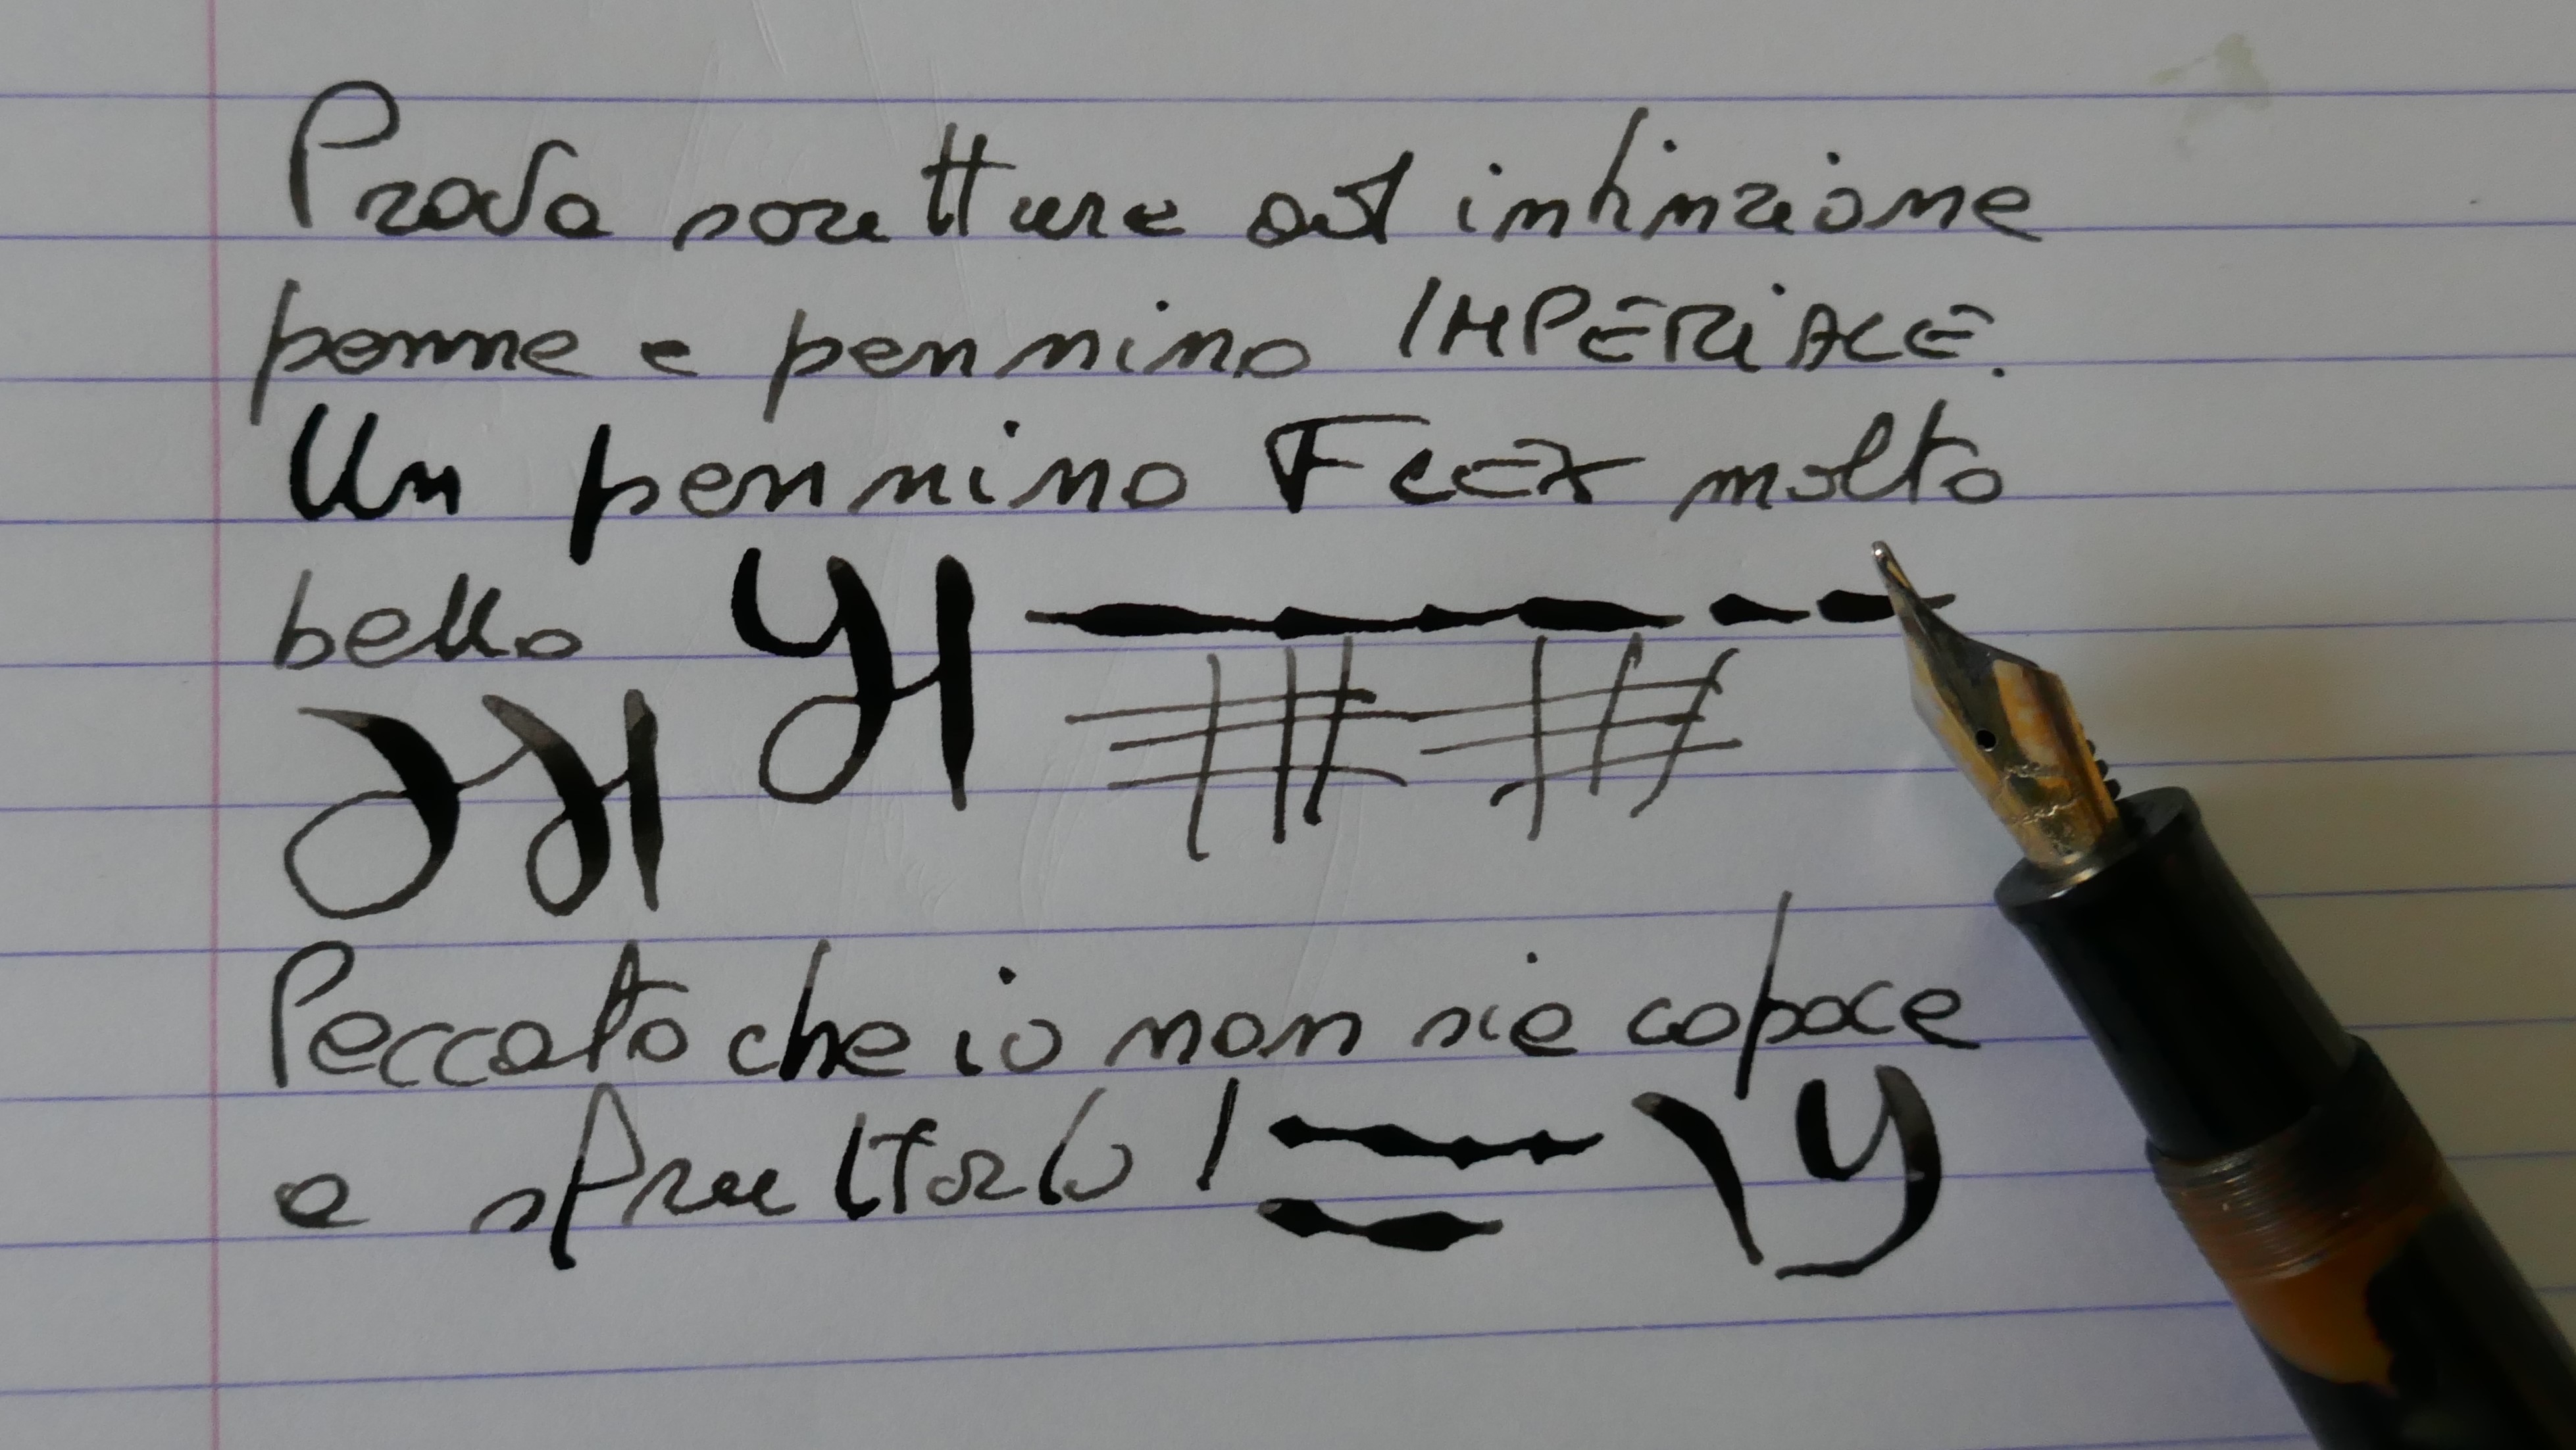 Prova scrittura ad intinzione
penna e pennino IMPERIALE.
Un pennino FLEX molto
bello
Peccato che io non sia capace
a sfruttarlo!